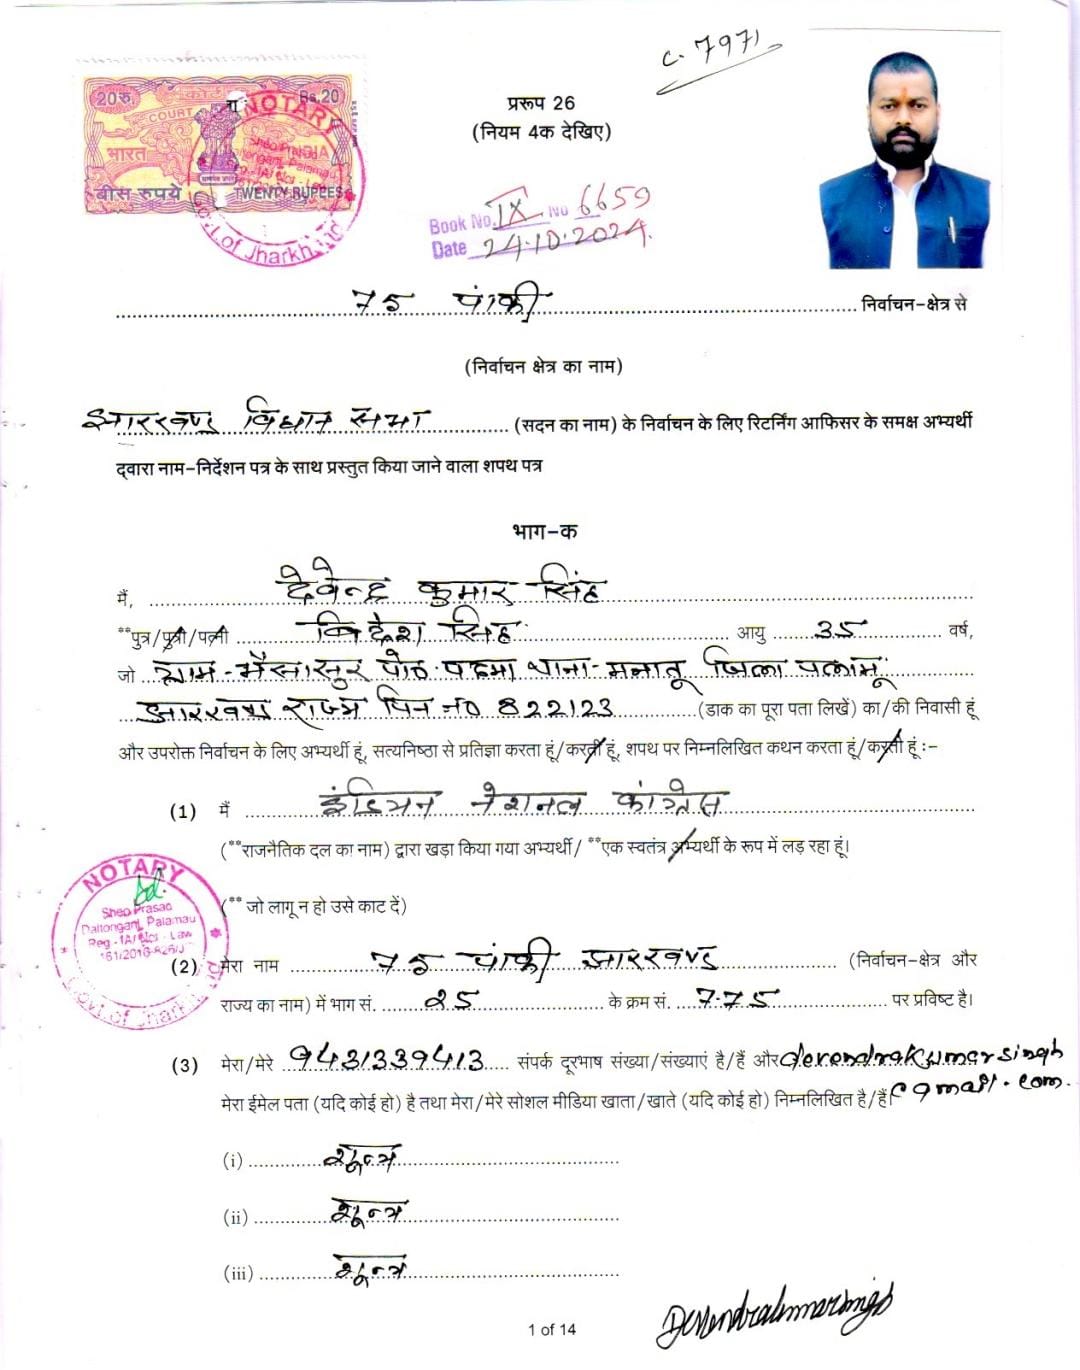 C. 7971
20रु. Rs.20
COURT
भारत INDIA
बीस रुपये TWENTY RUPEES
NOTARY
Sheo Prasad
Daltonganj, Palamau
Govt. of Jharkhand
प्ररूप 26
(नियम 4क देखिए)
Book No. IX No 6659
Date 24.10.2024.
75 पांकी निर्वाचन-क्षेत्र से
(निर्वाचन क्षेत्र का नाम)
झारखण्ड विधान सभा (सदन का नाम) के निर्वाचन के लिए रिटर्निंग आफिसर के समक्ष अभ्यर्थी
द्वारा नाम-निर्देशन पत्र के साथ प्रस्तुत किया जाने वाला शपथ पत्र
भाग-क
मैं, देवेन्द्र कुमार सिंह
**पुत्र/पुत्री/पत्नी बिदेश सिंह आयु 35 वर्ष,
जो ग्राम-मैसासुर पो०-पदमा थाना-मनातू जिला पलामू
झारखण्ड राज्य पिन नं0 822123 (डाक का पूरा पता लिखें) का/की निवासी हूं
और उपरोक्त निर्वाचन के लिए अभ्यर्थी हूं, सत्यनिष्ठा से प्रतिज्ञा करता हूं/करती हूं, शपथ पर निम्नलिखित कथन करता हूं/करती हूं :-
(1) मैं इंडियन नेशनल कांग्रेस
(**राजनैतिक दल का नाम) द्वारा खड़ा किया गया अभ्यर्थी/ **एक स्वतंत्र अभ्यर्थी के रूप में लड़ रहा हूं।
(** जो लागू न हो उसे काट दें)
NOTARY
Sheo Prasad
Daltonganj, Palamau
Govt. of Jharkhand
(2) मेरा नाम 75 पांकी झारखण्ड (निर्वाचन-क्षेत्र और
राज्य का नाम) में भाग सं. 25 के क्रम सं. 775 पर प्रविष्ट है।
(3) मेरा/मेरे 9431339413 संपर्क दूरभाष संख्या/संख्याएं है/हैं और devendrakumarsingh
मेरा ईमेल पता (यदि कोई हो) है तथा मेरा/मेरे सोशल मीडिया खाता/खाते (यदि कोई हो) निम्नलिखित है/हैं @gmail.com.
(i) शून्य
(ii) शून्य
(iii) शून्य
1 of 14
Devendrakumarsingh